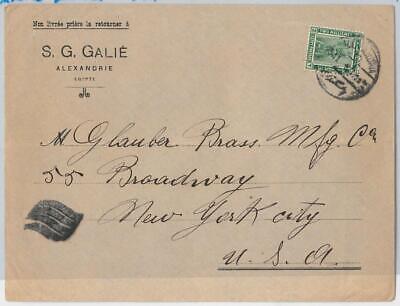 Non livrée prière la retourner à
S. G. GALIÉ
ALEXANDRIE
EGYPTE
TWO MILLIEMES
M Glauber Brass Mfg. Co
55 Broadway
New York city
U. S. A.